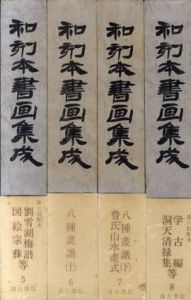 和刻本書画集成
劉雪湖梅譜
図絵宗彝等
5
汲古書院
和刻本書画集成
八種画譜(上)
6
汲古書院
和刻本書画集成
八種画譜(下)
費氏山水画式
7
汲古書院
和刻本書画集成
学古編
洞天清禄集等
8
汲古書院